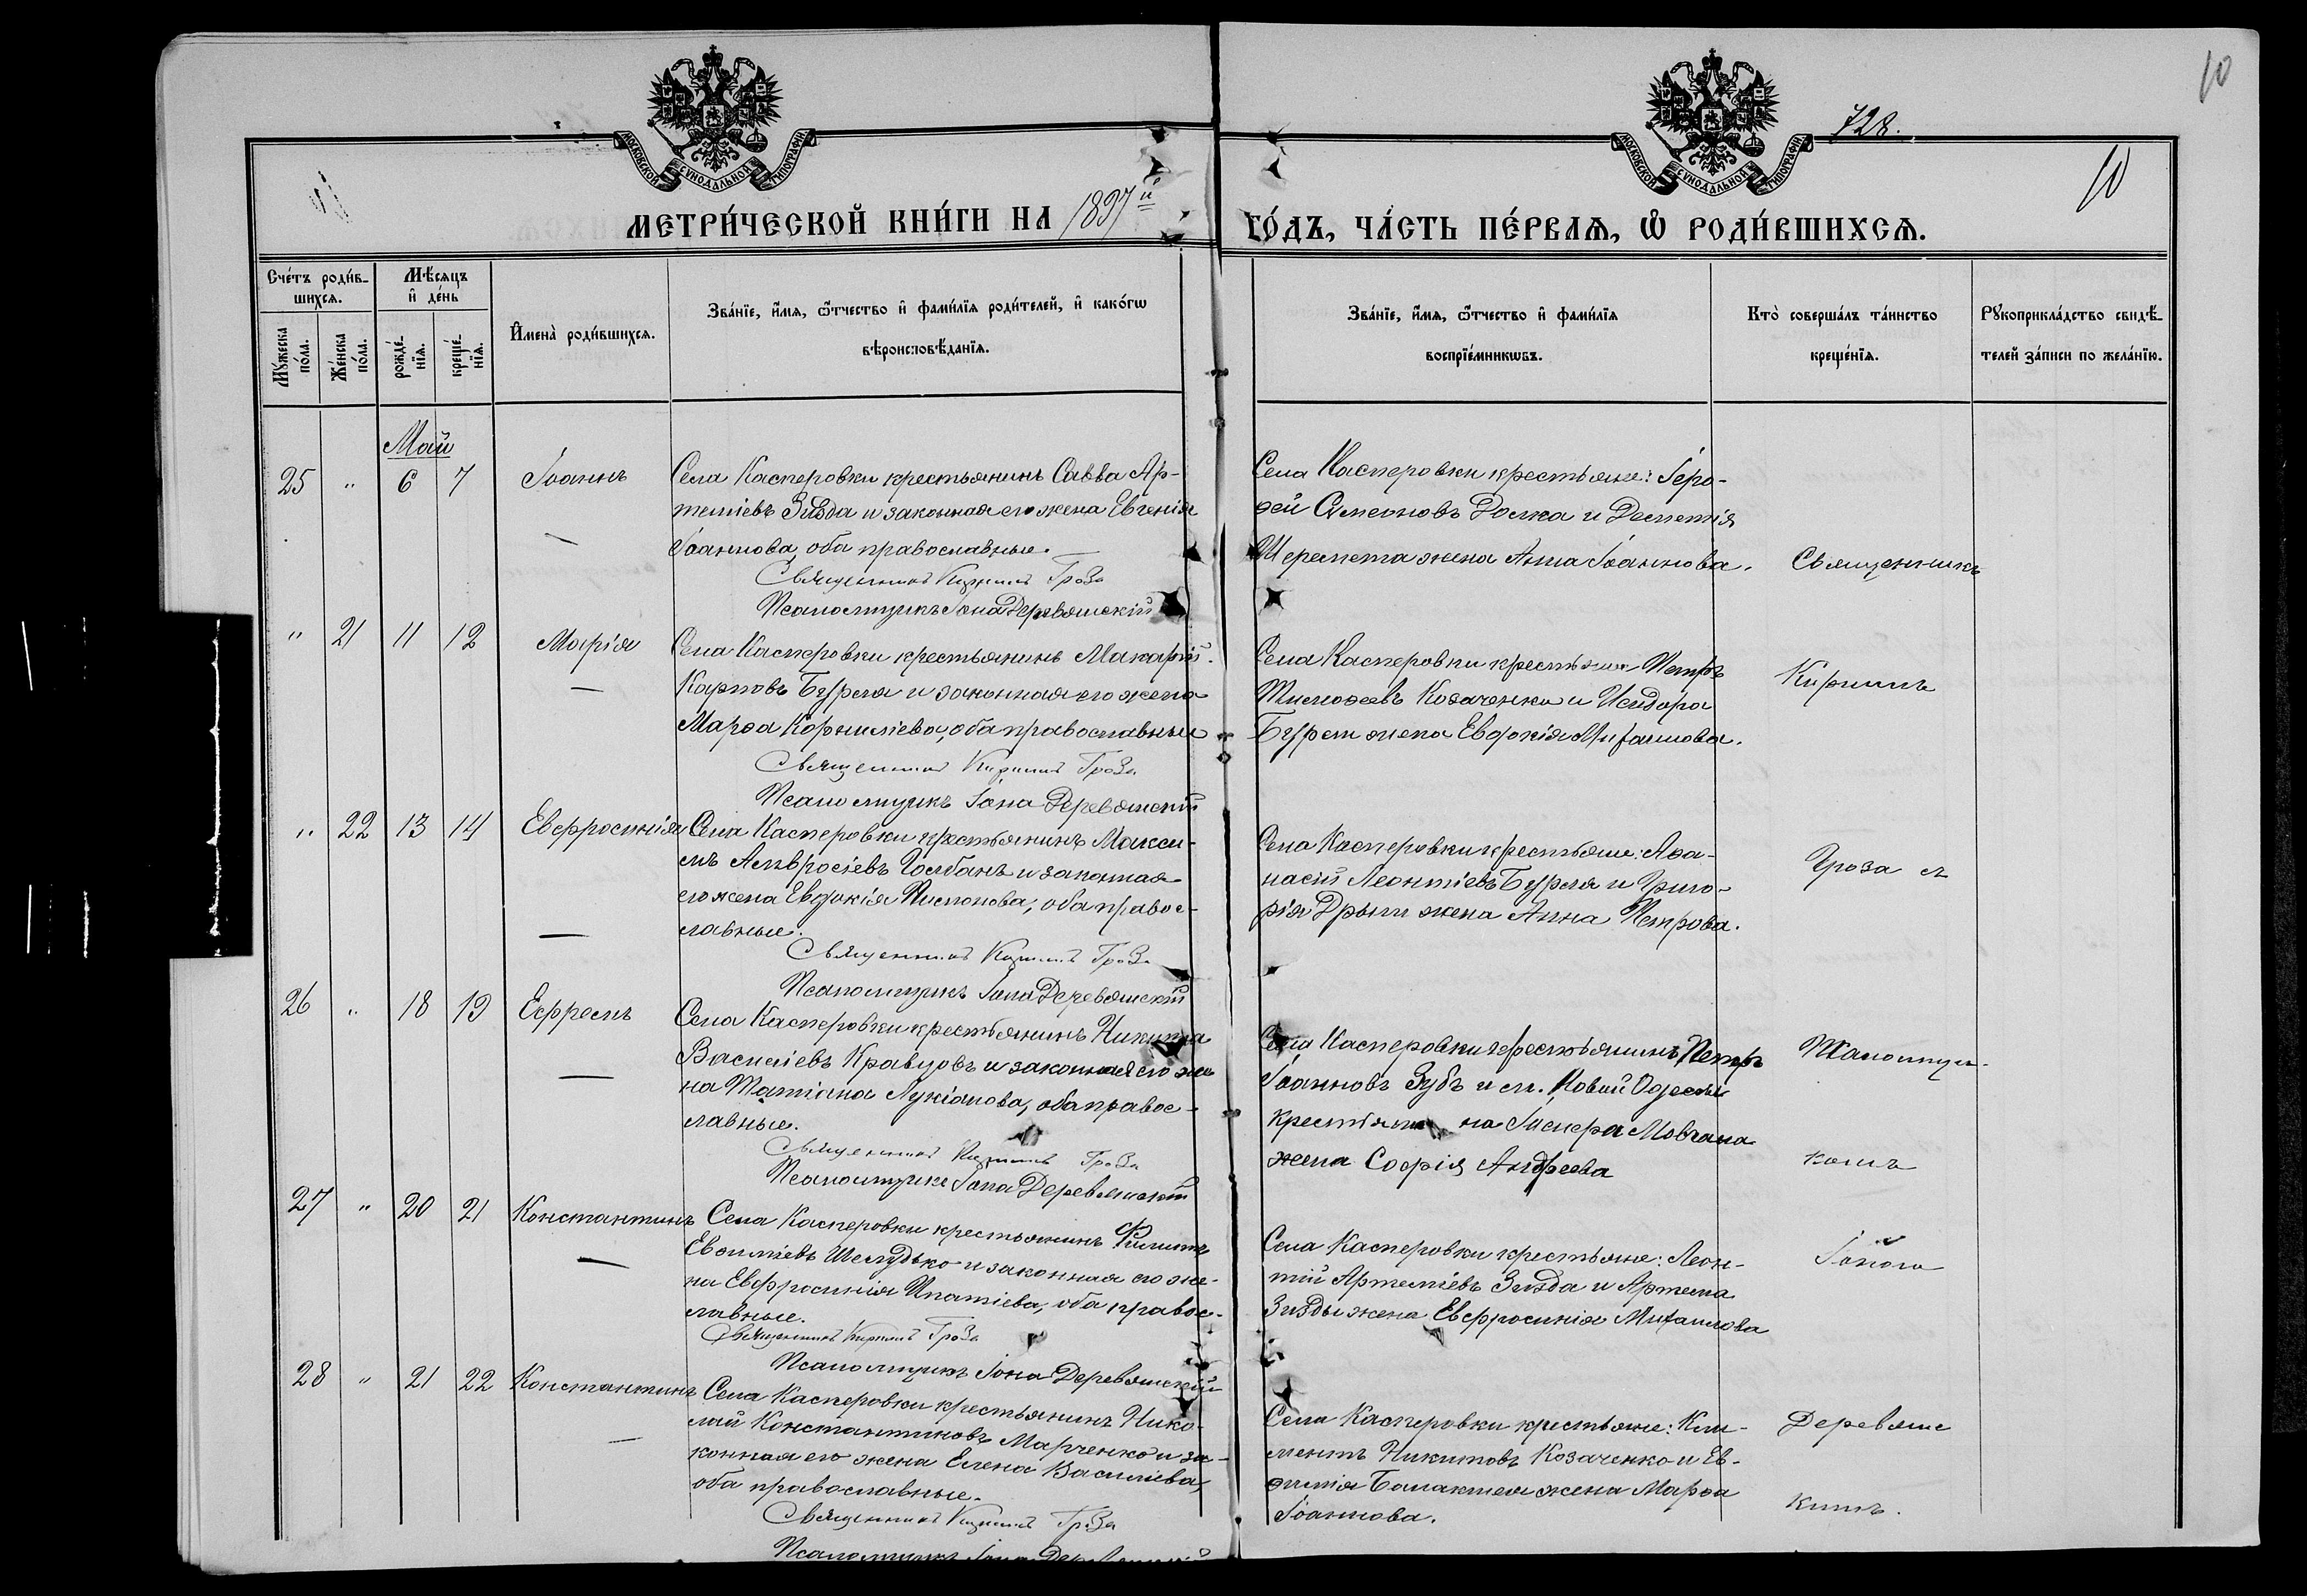 10
728.
10
МОСКОВСКОЙ СѴНОДАЛЬНОЙ ТИПОГРАФІИ
МОСКОВСКОЙ СѴНОДАЛЬНОЙ ТИПОГРАФІИ
МЕТРИ́ЧЕСКОЙ КНИ́ГИ НА 1897й ГО́ДЪ, ЧА́СТЬ ПЕ́РВАѦ, Ѡ҆ РОДИ́ВШИХСѦ.
Сче́тъ роди́в-
шихсѧ.
Мѣ́сѧцъ
и҆ де́нь
Мꙋ́жеска по́ла.
Же́нска по́ла.
рожде́-нїѧ.
креще́-нїѧ.
И҆мена̀ роди́вшихсѧ.
Зва́нїе, и҆́мѧ, ѻ҆́тчество и҆ фами́лїѧ роди́телей, и҆ како́гѡ
вѣроисповѣ́данїѧ.
Зва́нїе, и҆́мѧ, ѻ҆́тчество и҆ фами́лїѧ
воспрїе́мникѡвъ.
Кто̀ соверша́лъ та́инство
креще́нїѧ.
Рꙋкоприкла́дство свидѣ́-
телей за́писи по жела́нїю.
Май
25 " 6 7 Іоаннъ
Села Касперовки крестьянинъ Савва Ар-
теміевъ Зизда и законная его жена Евгенія
Іоаннова, оба православные.
Священникъ Кириллъ Гроза
Псаломщикъ Іона Деревянскій
Села Касперовки крестьяне:
Симеоновъ и Дементія
Шеремета жена Анна Іоаннова.
" 21 11 12 Марія
Села Касперовки крестьянинъ Макарій
Карповъ Бурля и законная его жена
Марѳа Корниліева, оба православные
Священникъ Кириллъ Гроза
Псаломщикъ Іона Деревянскій
Села Касперовки крестьяне Петръ
Тимоѳеевъ Козаченко и Исидора
Бурли жена Евдокія Михаилова.
" 22 13 14 Евфросинія
Села Касперовки крестьянинъ Макси-
мъ Амвросіевъ Голбанъ и законная
его жена Евдокія, оба правос-
лавные.
Священникъ Кириллъ Гроза
Псаломщикъ Іона Деревянскій
Села Касперовки крестьяне: Аѳа-
насій Леонтіевъ Бурля и Григо-
рія Дрыги жена Анна Петрова.
26 " 18 19 Ефремъ
Села Касперовки крестьянинъ Никита
Василіевъ Кравцовъ и законная его же-
на Татіана Лукіанова, оба правос-
лавные.
Священникъ Кириллъ Гроза
Псаломщикъ Іона Деревянскій
Села Касперовки крестьянинъ Петръ
Іоанновъ Зубъ и м. Новой Одессы
крестьянина Мовчана
жена Софія Андреева
27 " 20 21 Константинъ
Села Касперовки крестьянинъ Филиппъ
Евѳиміевъ Шелудько и законная его же-
на Евфросинія Ипатіева, оба правос-
лавные.
Священникъ Кириллъ Гроза
Псаломщикъ Іона Деревянскій
Села Касперовки крестьяне: Леон-
тій Артеміевъ Зизда и Артема
Зизды жена Евфросинія Михаилова
28 " 21 22 Константинъ
Села Касперовки крестьянинъ Нико-
лай Константиновъ Марченко и за-
конная его жена Елена Василіева,
оба православные.
Священникъ Кириллъ Гроза
Псаломщикъ Іона Деревянскій
Села Касперовки крестьяне: Кли-
ментъ Никитовъ Козаченко и Ев-
ѳимія жена Марѳа
Іоаннова.
Священникъ
Кириллъ
Гроза съ
Псаломщи-
комъ
Іоною
Деревянс
кимъ.